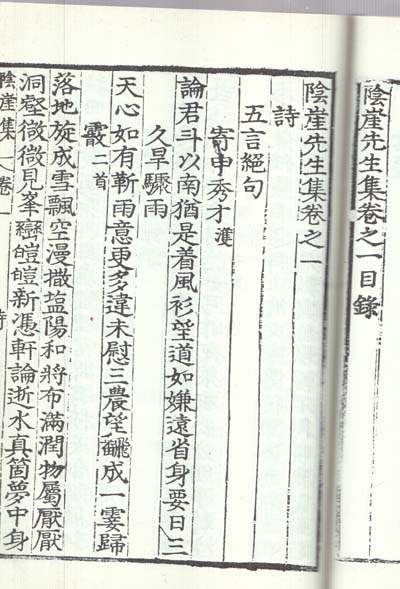 陰崖先生集卷之一目錄
陰崖先生集卷之一
詩
五言絕句
寄申秀才濩
論君斗以南猶是着風衫望道如嫌遠省身要日三
久旱驟雨
天心如有靳雨意更多違未慰三農望飜成一霎歸
霰二首
落地旋成雪飄空漫撒塩陽和將布滿潤物屬厭厭
洞壑微微見峯巒皚皚新憑軒論逝水真箇夢中身
陰崖集 卷一 詩